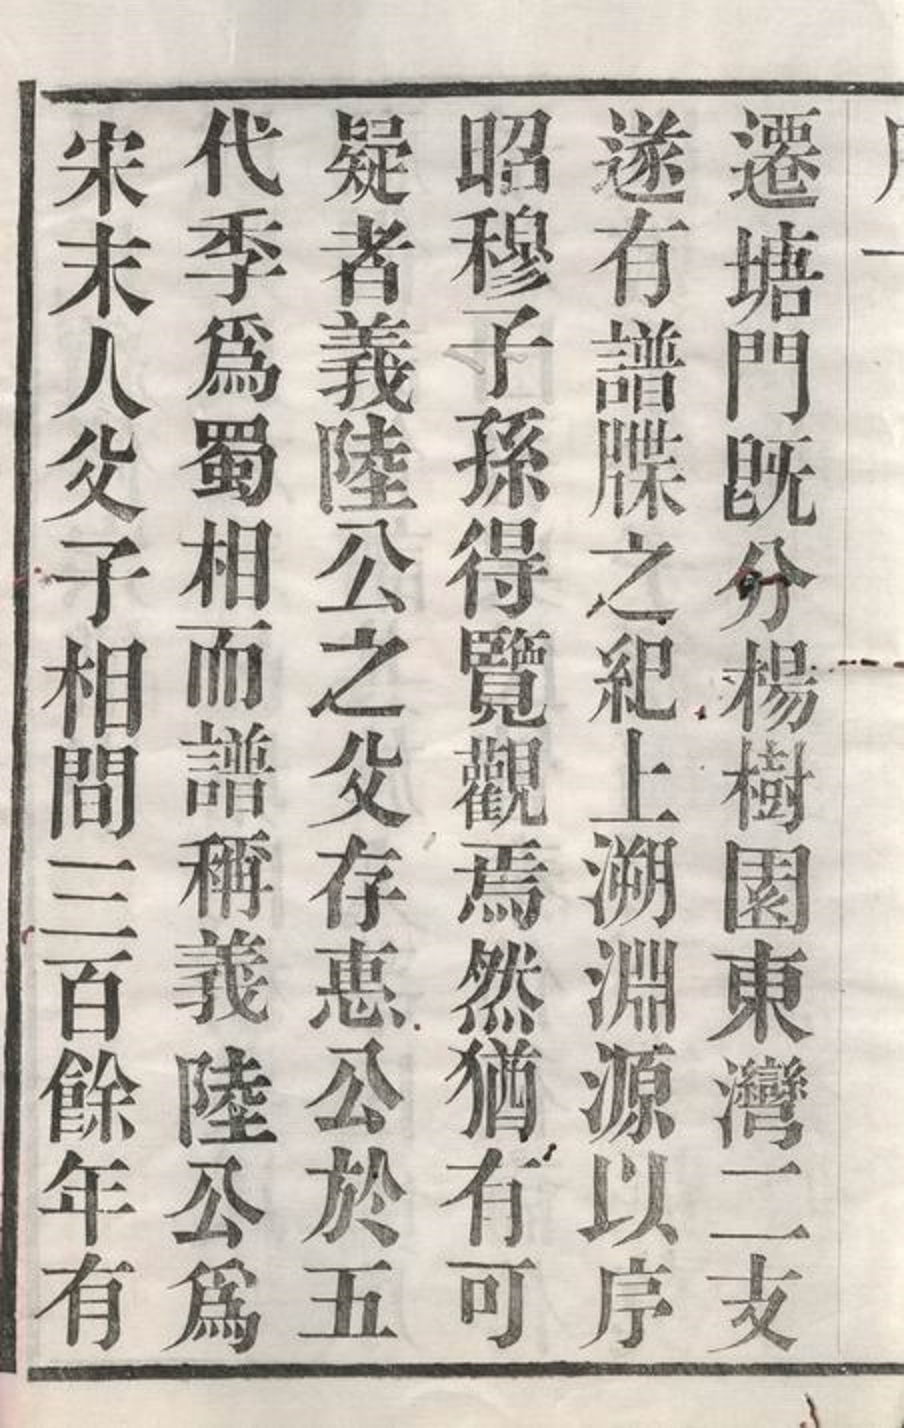 遷塘門既分楊樹園東灣二支
遂有譜牒之紀上溯淵源以序
昭穆子孫得覽觀焉然猶有可
疑者義陸公之父存惠公於五
代季爲蜀相而譜稱義陸公爲
宋末人父子相間三百餘年有